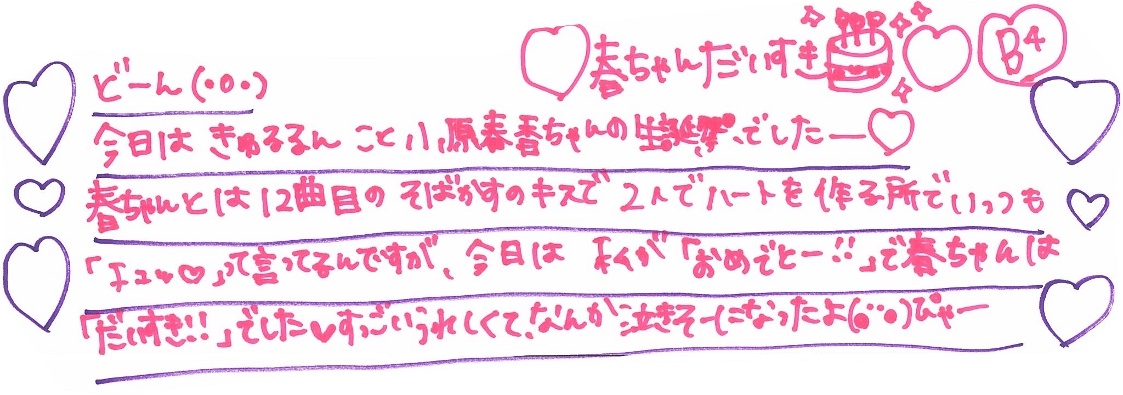 春ちゃんだいすき B4
どーん(•o•)
今日は きゅるるんこと小原春香ちゃんの生誕祭でしたー♡
春ちゃんとは12曲目の そばかすのキスで 2人でハートを作る所でいっつも
「チュッ♡」って言ってるんですが、今日は 私が「おめでとー!!」で春ちゃんは
「だいすき!!」でした♥すっごいうれしくて、なんか泣きそーになったよ(•̈o•̈)ぴゃー